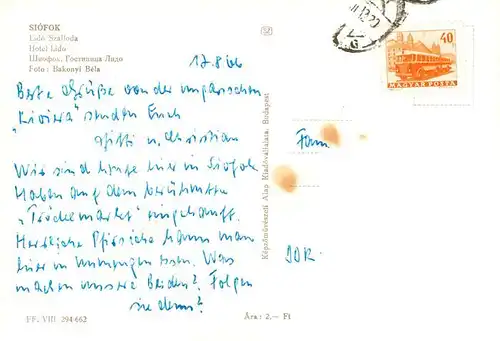 SIÓFOK
Lidó Szálloda
Hotel Lido
Шиофок, Гостиница Лидо
Foto: Bakonyi Béla
17.8.66
Beste Grüße von der ungarischen
"Riviera" senden Euch
u. Christian
Wir sind heute hier in Siófok
Haben auf dem berühmten
"Trödelmarkt" eingekauft.
Herrliche Pfirsiche kann man
hier in Unmengen essen. Was
machen unsere Beiden? Folgen
sie denn?
FF. VIII 294-662
Ára: 2,– Ft
Képzőművészeti Alap Kiadóvállalata, Budapest
40 f
MAGYAR POSTA
Fam.
DDR